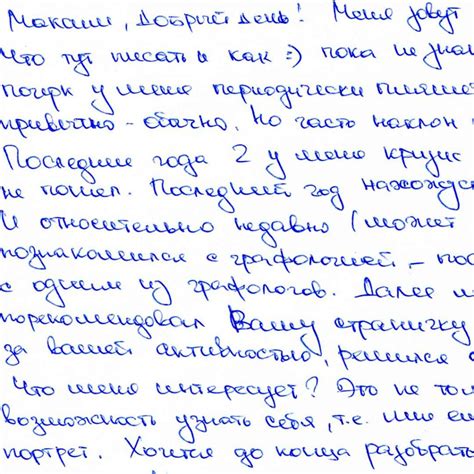 Максим, Добрый день! Меня зовут
Что тут писать и как :) пока не знаю
почерк у меня периодически пляшет
привычно - обычно. Но часть наклон
Последние года 2 у меня кризис
не пошел. Последний год нахожусь
И относительно недавно (может
познакомился с графологией, - пос
с одним из графологов. Далее м
порекомендовал Вашу страничку
за вашей активностью, решился
Что меня интересует? Это не тол
возможность узнать себя, т.е. мне
портрет. Хочется до конца разобрать